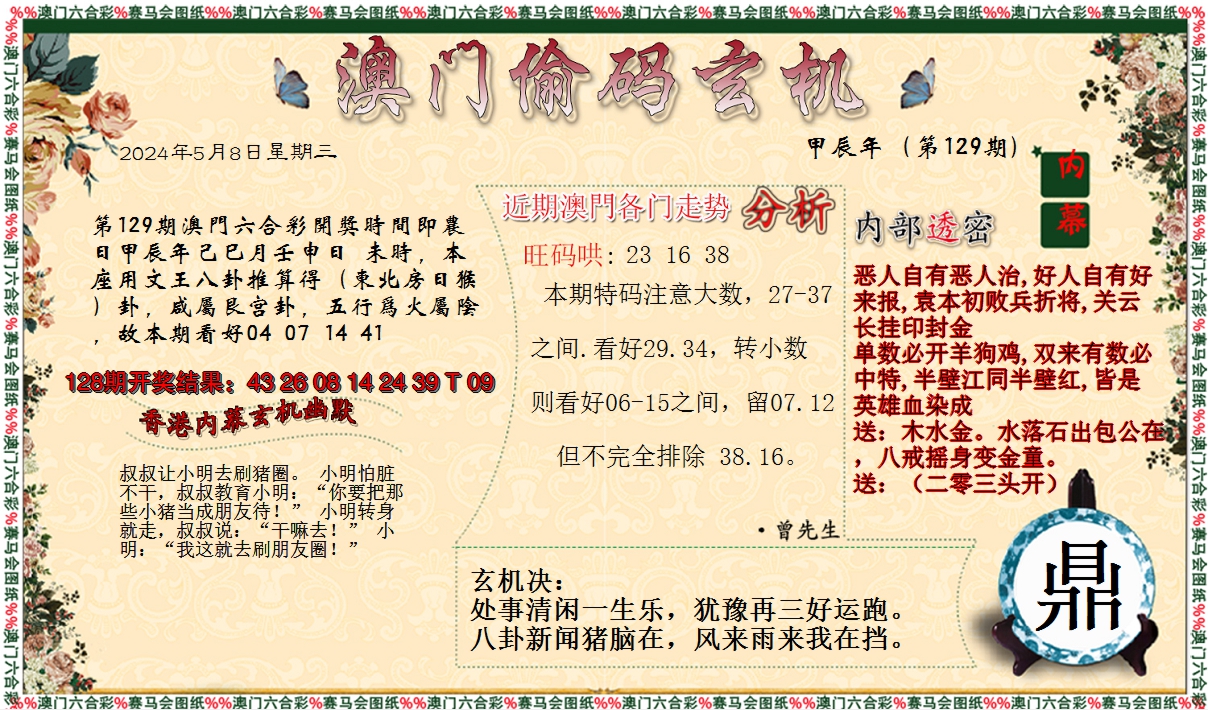 %%澳门六合彩%赛马会图纸%%澳门六合彩%赛马会图纸%%澳门六合彩%赛马会图纸%%澳门六合彩%赛马会图纸%%澳门六合彩%赛马会图纸%%澳门六合彩%赛马会图纸%%
澳门偷码玄机
2024年5月8日星期三
甲辰年（第129期）
第129期澳門六合彩開獎時間即農
日甲辰年己巳月壬申日 未時，本
座用文王八卦推算得（東北房日猴
）卦，咸屬艮宫卦，五行爲火屬陰
，故本期看好04 07 14 41
128期开奖结果：43 26 08 14 24 39 T 09
香港内幕玄机幽默
叔叔让小明去刷猪圈。 小明怕脏
不干，叔叔教育小明：“你要把那
些小猪当成朋友待！” 小明转身
就走，叔叔说：“干嘛去！” 小
明：“我这就去刷朋友圈！”
近期澳門各门走势 分析
旺码哄: 23 16 38
本期特码注意大数，27-37
之间.看好29.34，转小数
则看好06-15之间，留07.12
但不完全排除 38.16。
·曾先生
玄机决：
处事清闲一生乐，犹豫再三好运跑。
八卦新闻猪脑在，风来雨来我在挡。
内幕
内部透密
恶人自有恶人治,好人自有好
来报,袁本初败兵折将,关云
长挂印封金
单数必开羊狗鸡,双来有数必
中特,半壁江同半壁红,皆是
英雄血染成
送：木水金。水落石出包公在
，八戒摇身变金童。
送：（二零三头开）
鼎
%%澳门六合彩%赛马会图纸%%澳门六合彩%赛马会图纸%%澳门六合彩%赛马会图纸%%澳门六合彩%赛马会图纸%%澳门六合彩%赛马会图纸%%澳门六合彩%赛马会图纸%%